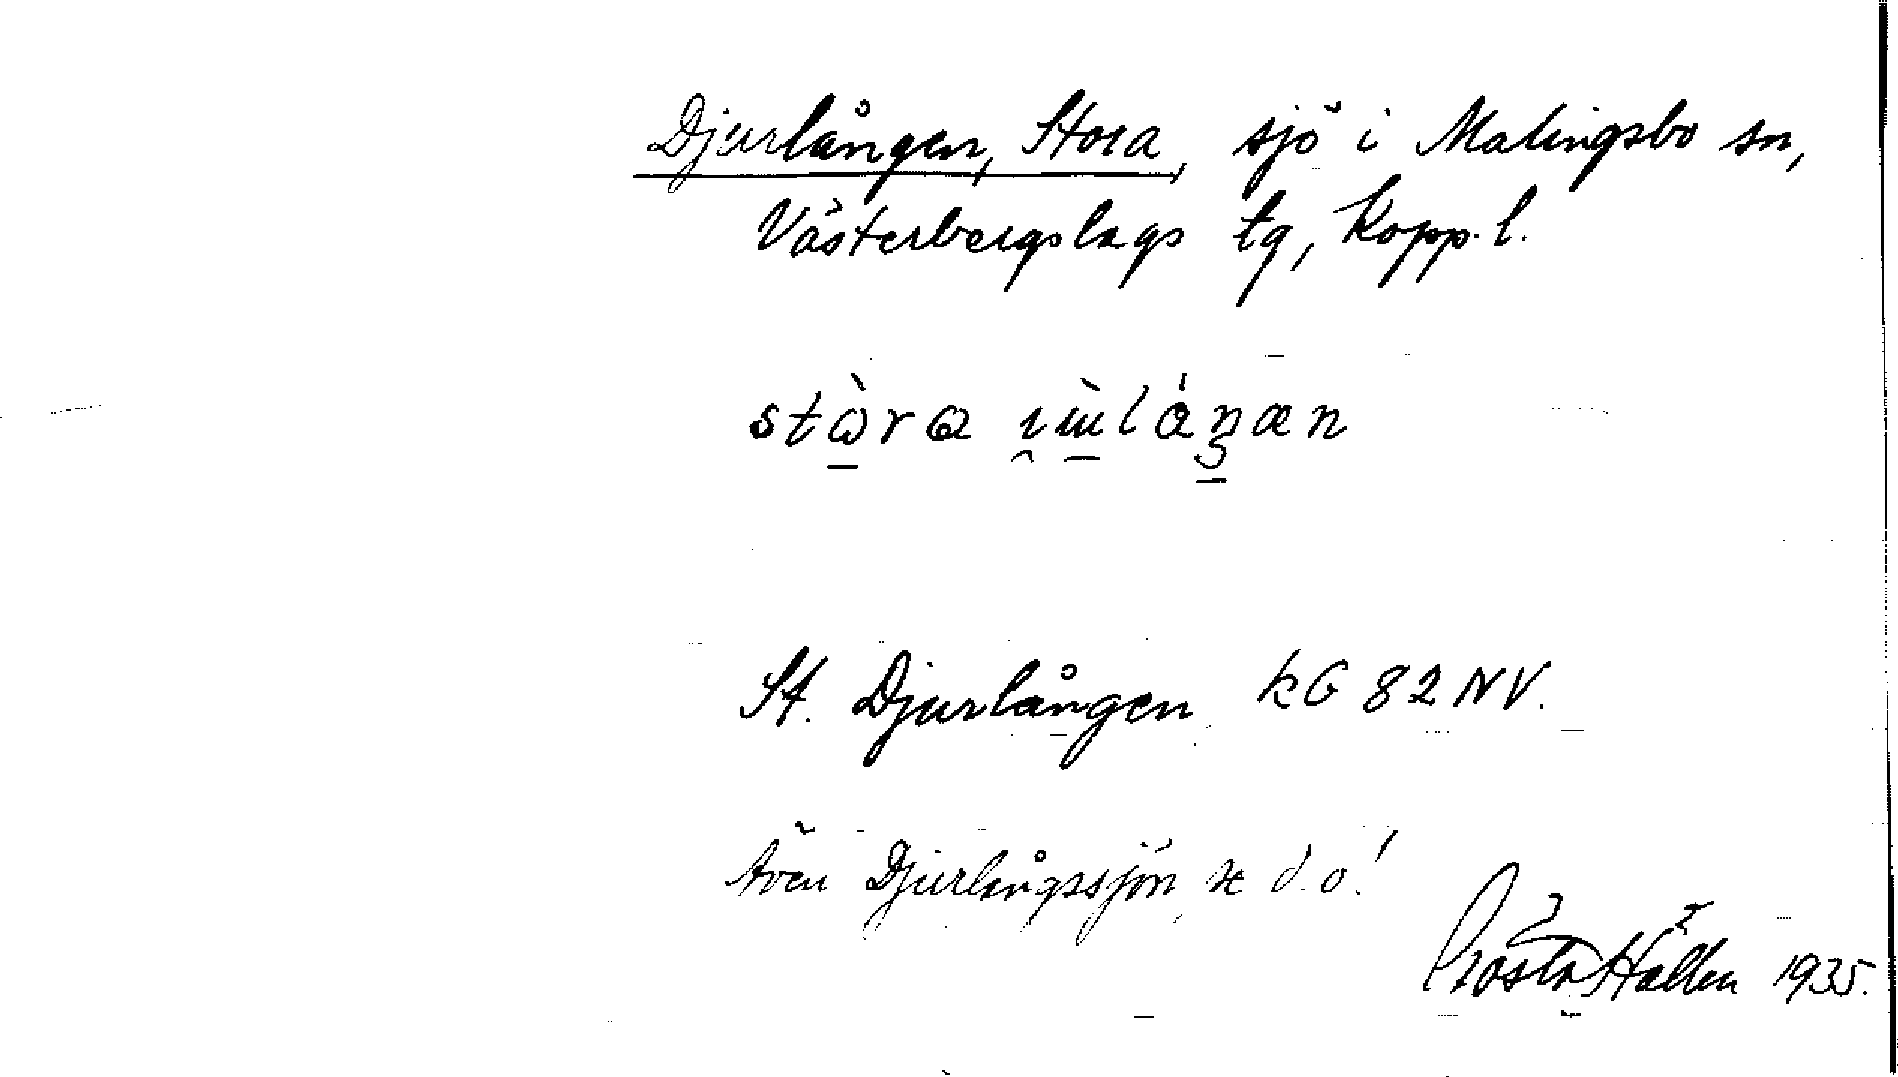 Djurlången, Stora, sjö i Malingsbo sn,
Västerbergslags tg, Kopp. l.
St. Djurlången kG 82 NV.
Även Djurlångssjön, se d. o!
Gösta Hallén 1935.